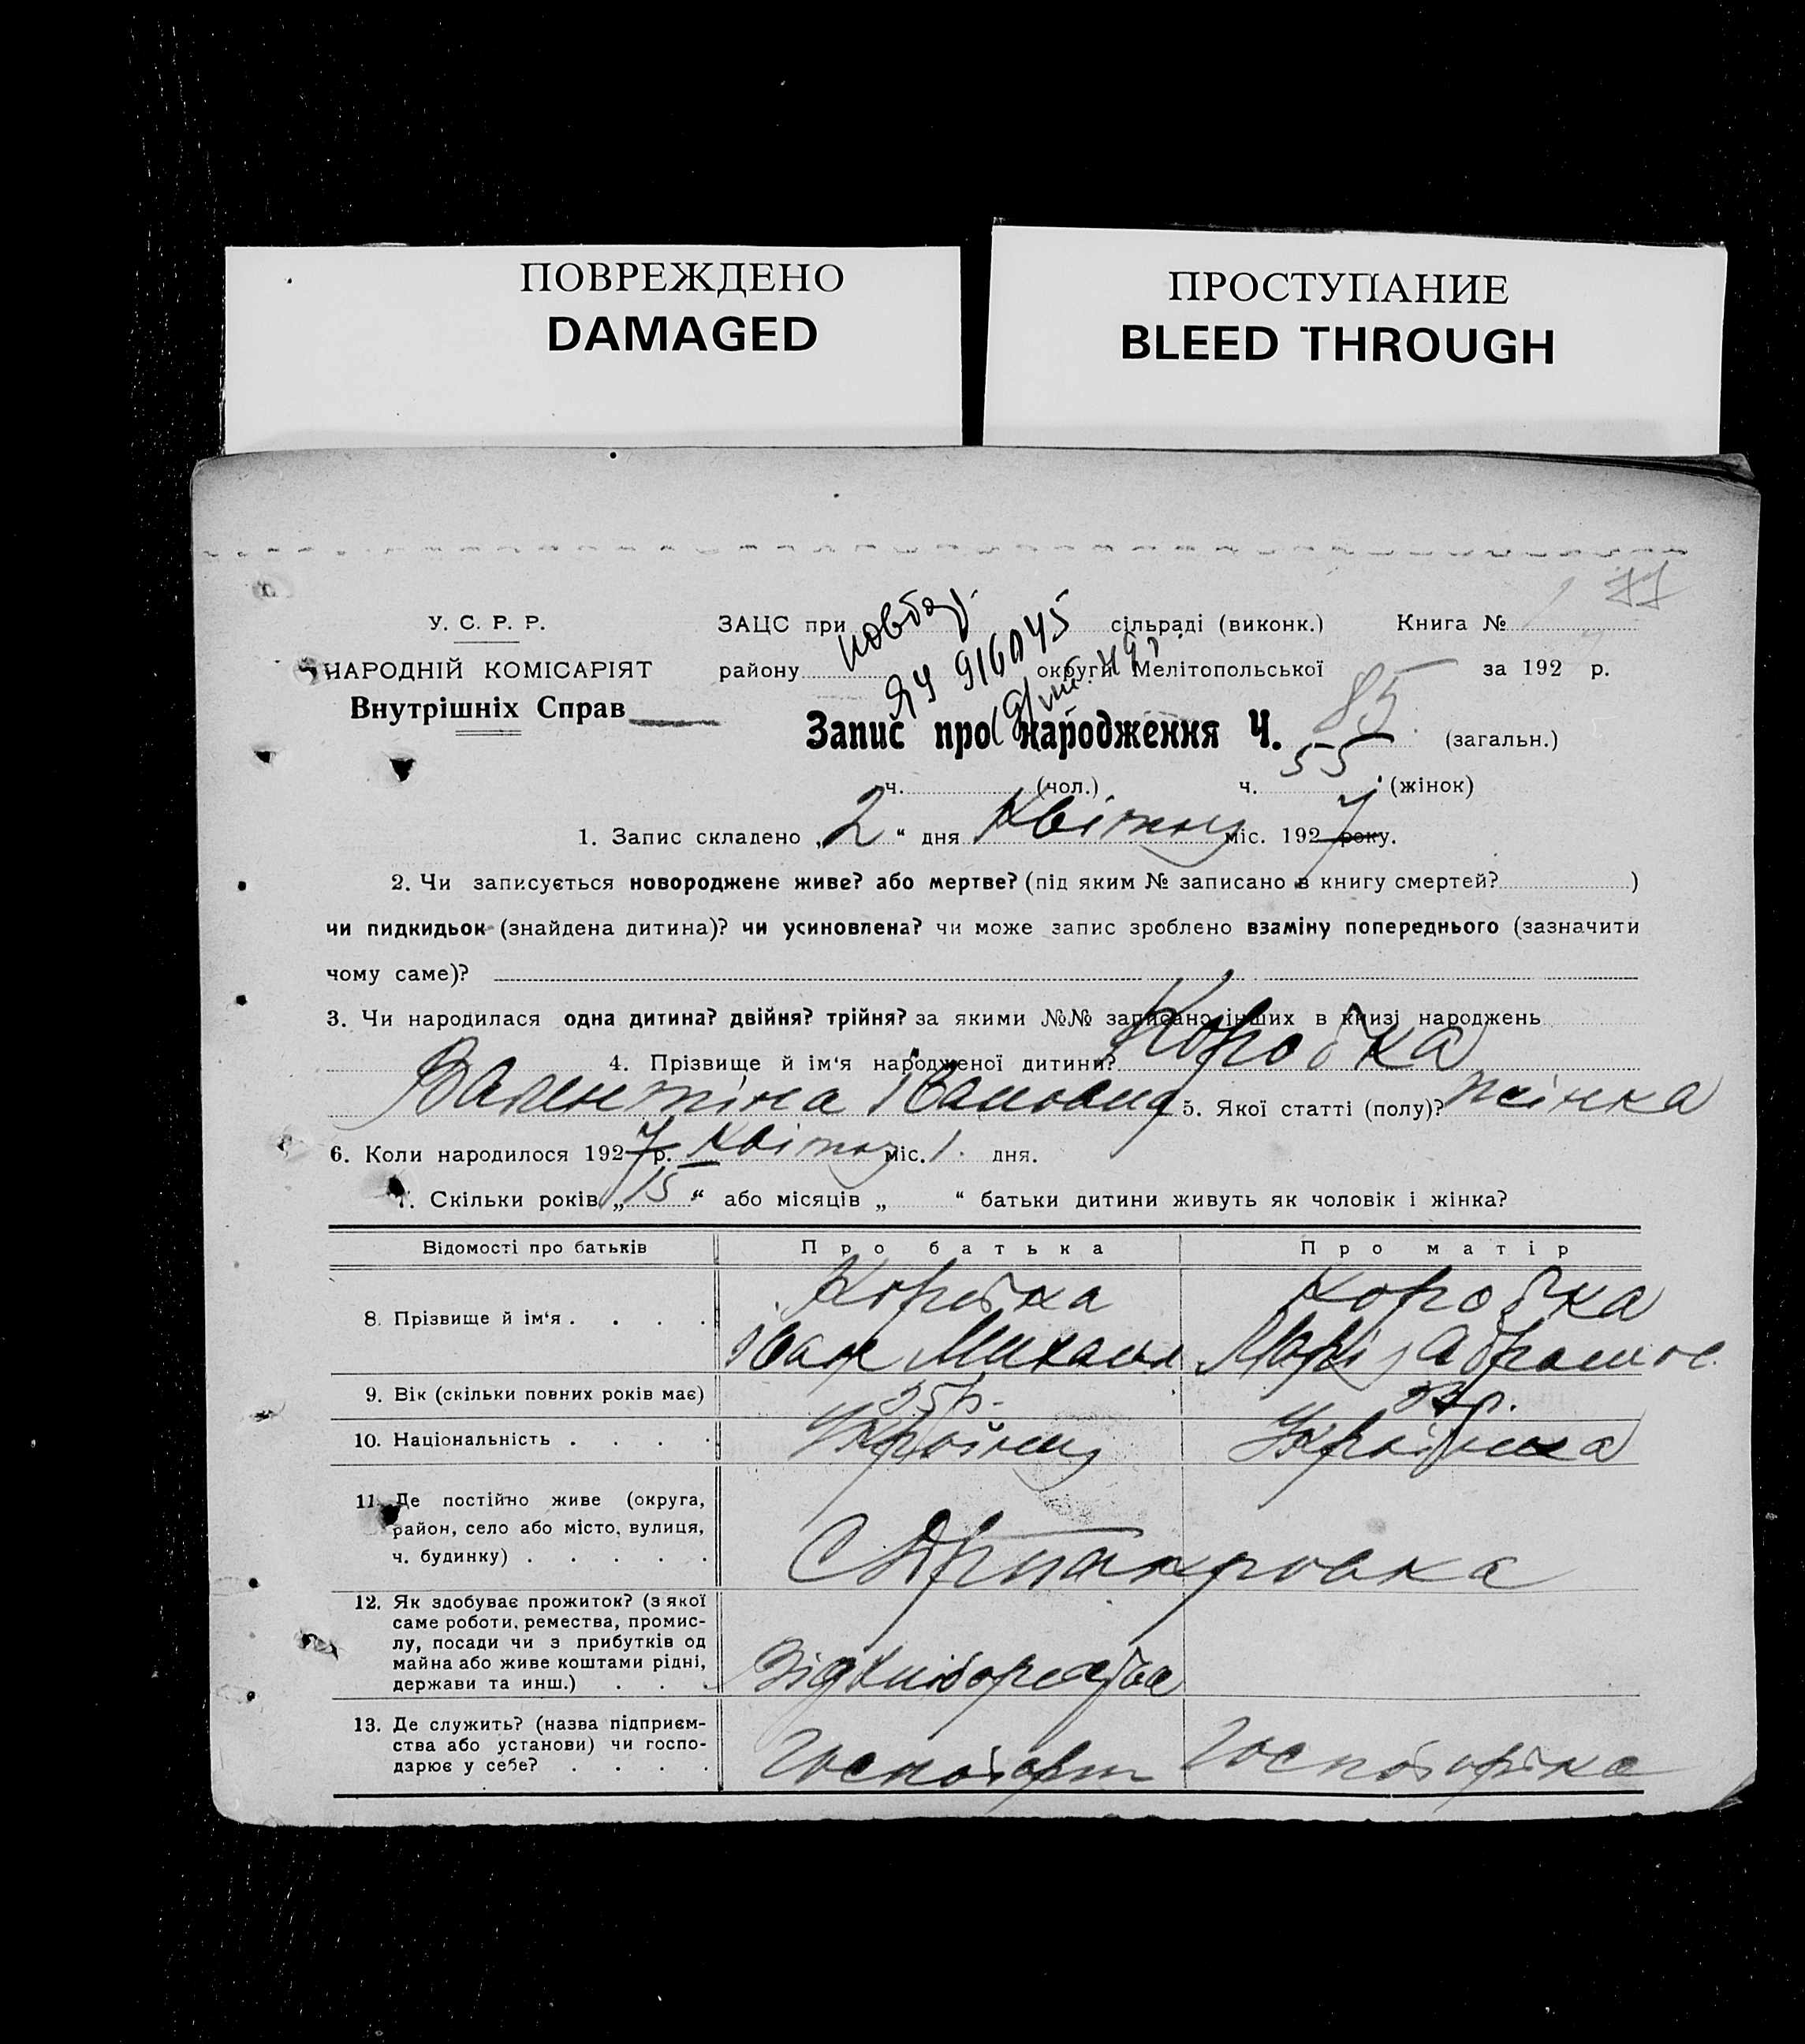 ПОВРЕЖДЕНО
DAMAGED
ПРОСТУПАНИЕ
BLEED THROUGH
У. С. Р. Р.
НАРОДНІЙ КОМІСАРІЯТ
Внутрішніх Справ
ЗАЦС при сільраді (виконк.) Книга №
району округи Мелітопольської за 192 р.
Запис про народження Ч. 85 (загальн.)
ч. (чол.) ч. 55 (жінок)
1. Запис складено „2“ дня Квітня міс. 1927 року.
2. Чи записується новороджене живе? або мертве? (під яким № записано в книгу смертей? )
чи пидкидьок (знайдена дитина)? чи усиновлена? чи може запис зроблено взаміну попереднього (зазначити
чому саме)?
3. Чи народилася одна дитина? двійня? трійня? за якими №№ записано інших в книзі народжень
4. Прізвище й ім'я народженої дитини? Коробка
Валентіна Івановна 5. Якої статті (полу)? жінка
6. Коли народилося 1927 р. Квітня міс. 1. дня.
7. Скільки років „15“ або місяців „ “ батьки дитини живуть як чоловік і жінка?
Відомості про батьків Про батька Про матір
8. Прізвище й ім'я . . . . Коробка Коробка
Іван Михайл Марія Абрамов.
9. Вік (скільки повних років має) 35р.
10. Національність . . . . Українець Українка
11. Де постійно живе (округа,
район, село або місто, вулиця,
ч. будинку) . . . . .
12. Як здобуває прожиток? (з якої
саме роботи, ремества, промис-
лу, посади чи з прибутків од
майна або живе коштами рідні,
держави та инш.) . . . Від хліборобства
13. Де служить? (назва підприєм-
ства або установи) чи госпо-
дарює у себе? . . . . Господарт Господарка